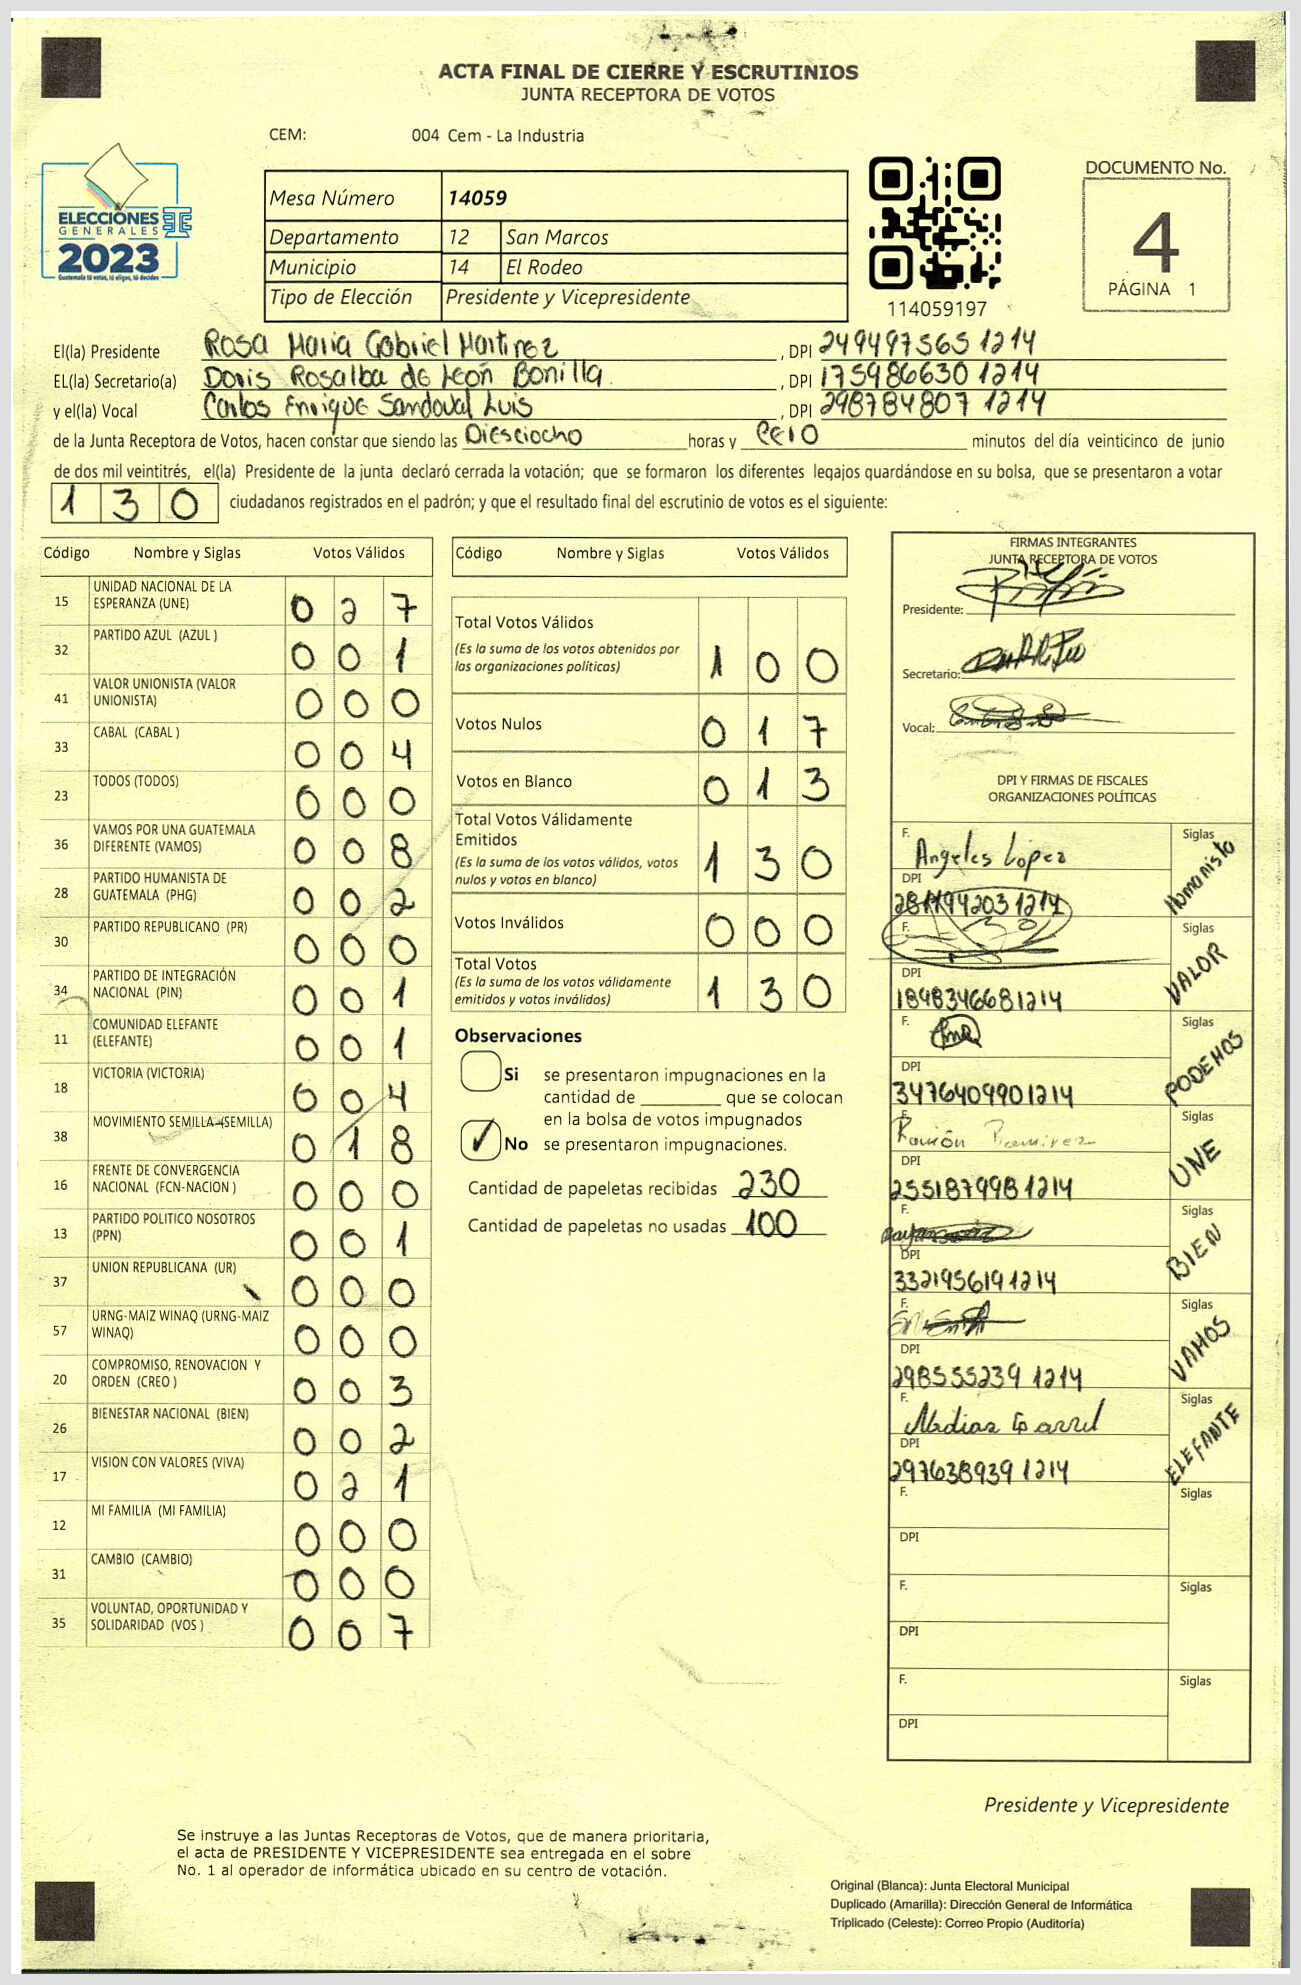 ACTA FINAL DE CIERRE Y ESCRUTINIOS
JUNTA RECEPTORA DE VOTOS
CEM: 004 Cem - La Industria
ELECCIONES
GENERALES
2023
Guatemala tú votas, tú eliges, tú decides
Mesa Número 14059
Departamento 12 San Marcos
Municipio 14 El Rodeo
Tipo de Elección Presidente y Vicepresidente
114059197
DOCUMENTO No.
4
PÁGINA 1
El(la) Presidente Rosa Maria Gabriel Martinez, DPI 249497565 1214
EL(la) Secretario(a) Doris Rosalba de León Bonilla, DPI 175986630 1214
y el(la) Vocal Carlos Enrique Sandoval Luis, DPI 298784807 1214
de la Junta Receptora de Votos, hacen constar que siendo las Diesciocho horas y cero minutos del día veinticinco de junio
de dos mil veintitrés, el(la) Presidente de la junta declaró cerrada la votación; que se formaron los diferentes legajos guardándose en su bolsa, que se presentaron a votar
130 ciudadanos registrados en el padrón; y que el resultado final del escrutinio de votos es el siguiente:
Código Nombre y Siglas Votos Válidos
15 UNIDAD NACIONAL DE LA ESPERANZA (UNE) 027
32 PARTIDO AZUL (AZUL ) 001
41 VALOR UNIONISTA (VALOR UNIONISTA) 000
33 CABAL (CABAL ) 004
23 TODOS (TODOS) 000
36 VAMOS POR UNA GUATEMALA DIFERENTE (VAMOS) 008
28 PARTIDO HUMANISTA DE GUATEMALA (PHG) 002
30 PARTIDO REPUBLICANO (PR) 000
34 PARTIDO DE INTEGRACIÓN NACIONAL (PIN) 001
11 COMUNIDAD ELEFANTE (ELEFANTE) 001
18 VICTORIA (VICTORIA) 004
38 MOVIMIENTO SEMILLA (SEMILLA) 018
16 FRENTE DE CONVERGENCIA NACIONAL (FCN-NACION ) 000
13 PARTIDO POLITICO NOSOTROS (PPN) 001
37 UNION REPUBLICANA (UR) 000
57 URNG-MAIZ WINAQ (URNG-MAIZ WINAQ) 000
20 COMPROMISO, RENOVACION Y ORDEN (CREO ) 003
26 BIENESTAR NACIONAL (BIEN) 002
17 VISION CON VALORES (VIVA) 021
12 MI FAMILIA (MI FAMILIA) 000
31 CAMBIO (CAMBIO) 000
35 VOLUNTAD, OPORTUNIDAD Y SOLIDARIDAD (VOS ) 007
Código Nombre y Siglas Votos Válidos
Total Votos Válidos 100
(Es la suma de los votos obtenidos por
las organizaciones políticas)
Votos Nulos 017
Votos en Blanco 013
Total Votos Válidamente
Emitidos 130
(Es la suma de los votos válidos, votos
nulos y votos en blanco)
Votos Inválidos 000
Total Votos 130
(Es la suma de los votos válidamente
emitidos y votos inválidos)
Observaciones
Si se presentaron impugnaciones en la
cantidad de ________ que se colocan
en la bolsa de votos impugnados
✓ No se presentaron impugnaciones.
Cantidad de papeletas recibidas 230
Cantidad de papeletas no usadas 100
FIRMAS INTEGRANTES
JUNTA RECEPTORA DE VOTOS
Presidente:
Secretario:
Vocal:
DPI Y FIRMAS DE FISCALES
ORGANIZACIONES POLÍTICAS
F. Angeles López Siglas Humanista
DPI 281194203 1214
F. Siglas VALOR
DPI 189834668 1214
F. Siglas PODEMOS
DPI 347640990 1214
F. Ramón Ramirez Siglas UNE
DPI 255187998 1214
F. Siglas BIEN
DPI 332195619 1214
F. Siglas VAMOS
DPI 298555239 1214
F. Siglas ELEFANTE
DPI 297638939 1214
F. Siglas
DPI
F. Siglas
DPI
F. Siglas
DPI
Presidente y Vicepresidente
Se instruye a las Juntas Receptoras de Votos, que de manera prioritaria,
el acta de PRESIDENTE Y VICEPRESIDENTE sea entregada en el sobre
No. 1 al operador de informática ubicado en su centro de votación.
Original (Blanca): Junta Electoral Municipal
Duplicado (Amarilla): Dirección General de Informática
Triplicado (Celeste): Correo Propio (Auditoría)